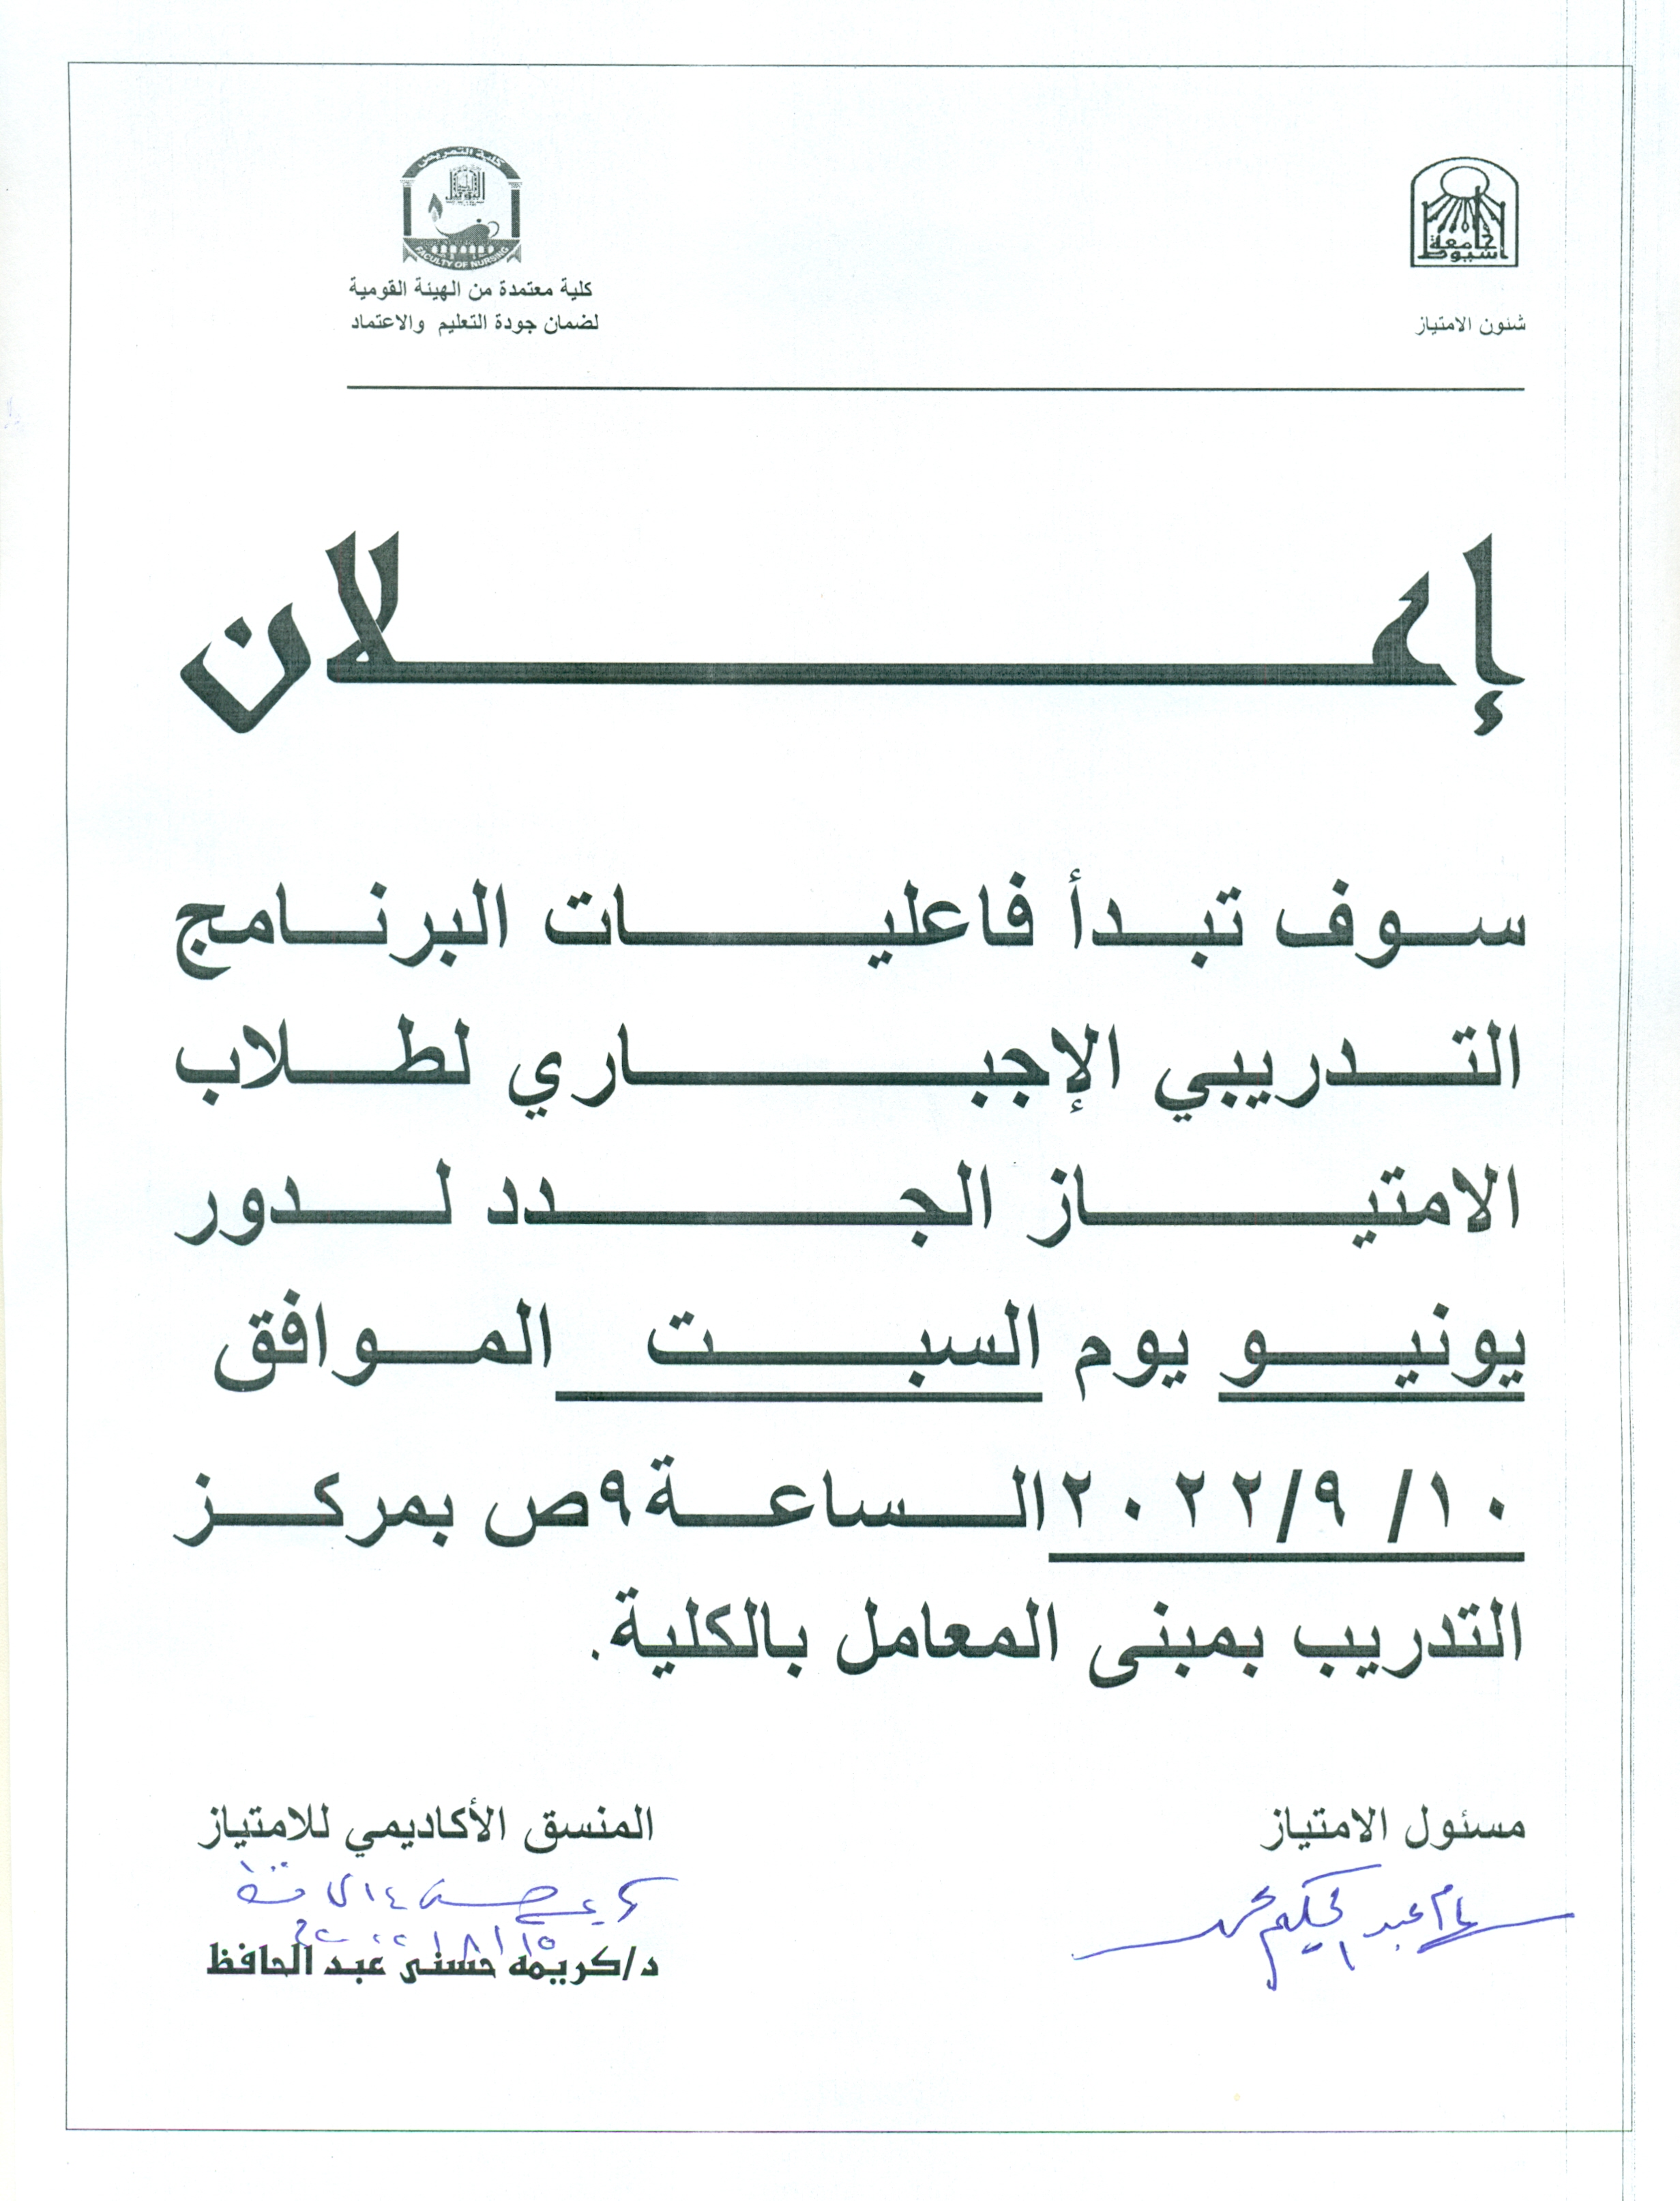 كلية التمريض
جامعة أسيوط
FACULTY OF NURSING
كلية معتمدة من الهيئة القومية
لضمان جودة التعليم والاعتماد
شئون الامتياز
إعلان
سوف تبدأ فاعليات البرنامج
التدريبي الإجباري لطلاب
الامتياز الجدد لدور
يونيو يوم السبت الموافق
١٠/ ٢٠٢٢/٩ الساعة ٩ص بمركز
التدريب بمبنى المعامل بالكلية.
مسئول الامتياز
المنسق الأكاديمي للامتياز
عبد الحكيم محمد
٢٠٢٢/٨/١٥
د/كريمه حسنى عبد الحافظ